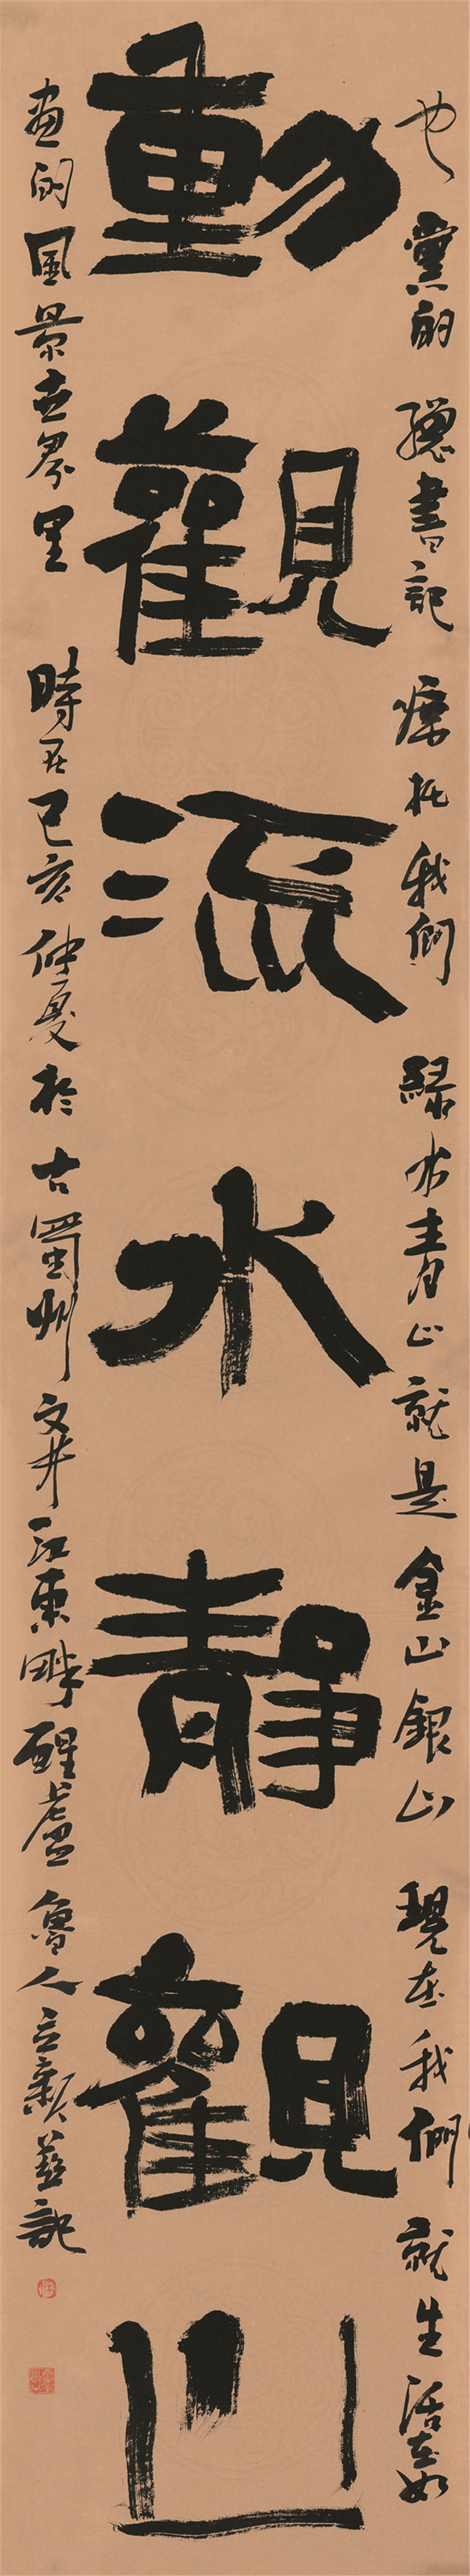 也黨的總書記托我們綠水青山就是金山銀山現在我們就生活在如
動觀流水靜觀山
畫的風景世界里時在己亥仲夏於古蜀州文井江東畔醒廬魯人立記